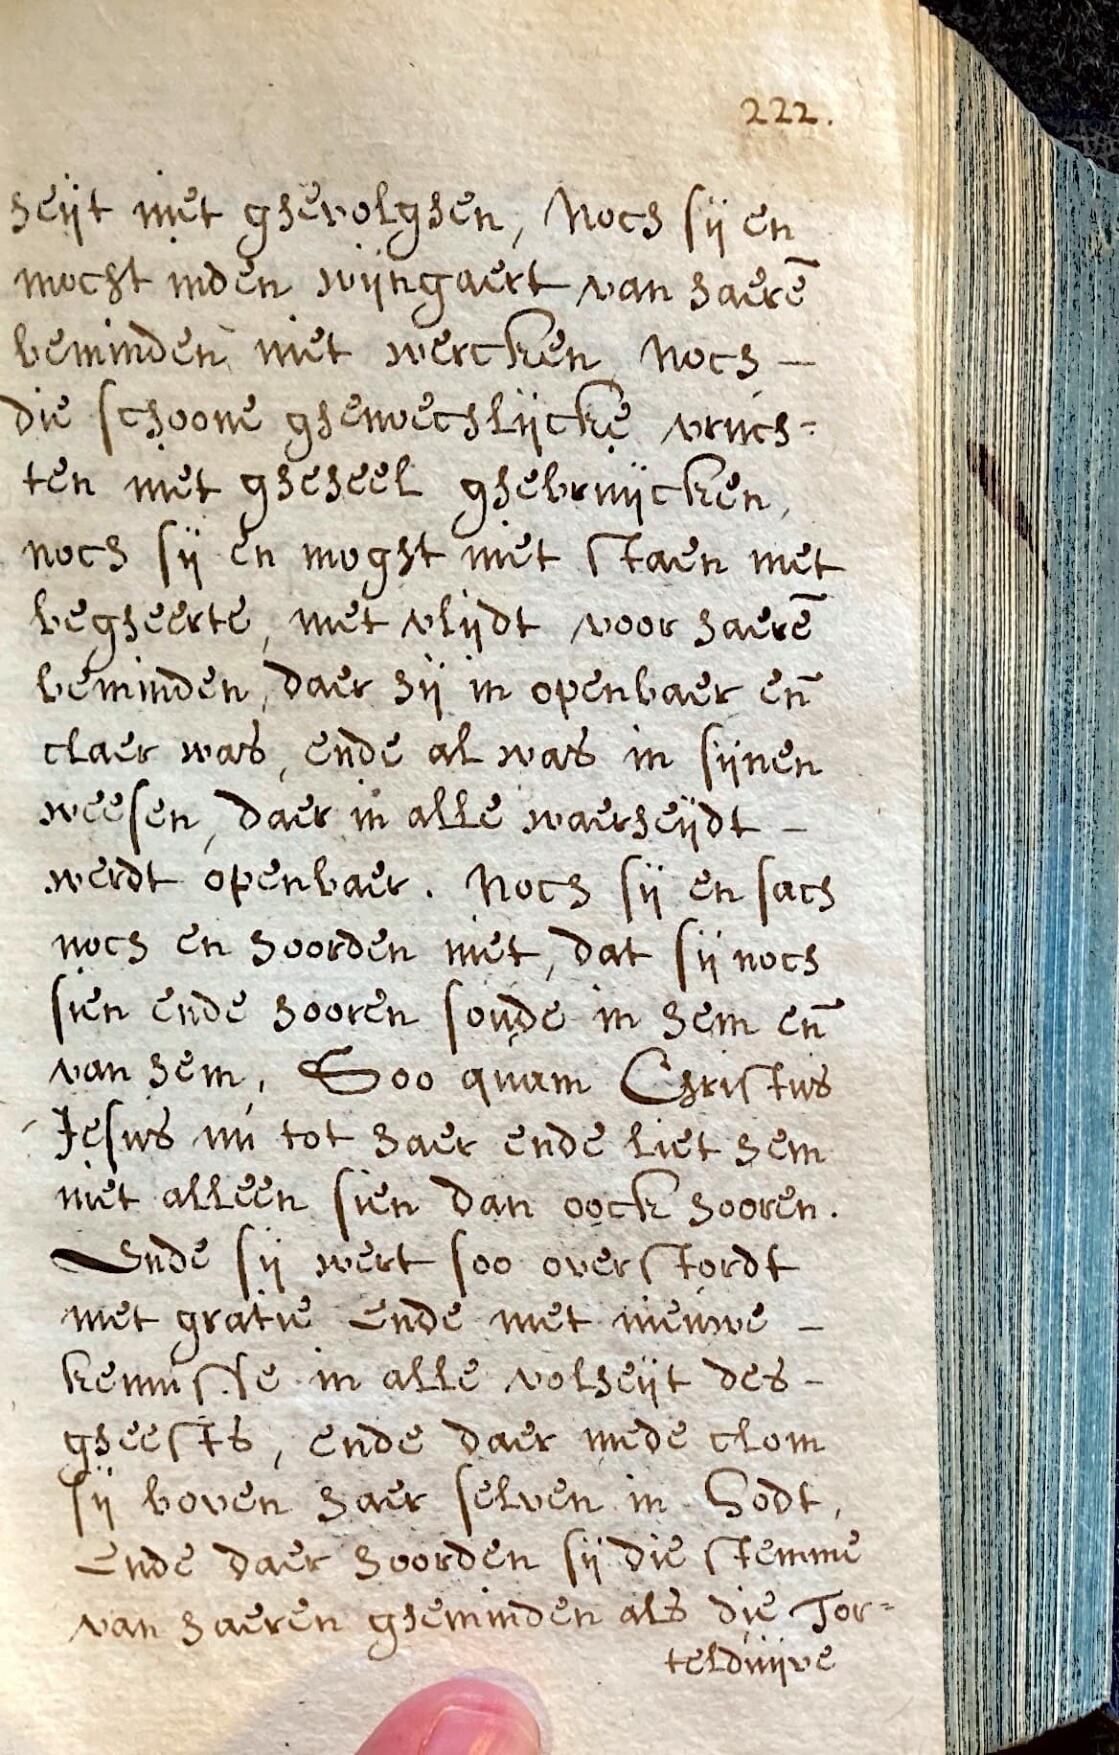 222.
heijt niet ghevolghen, Noch sij en
mocht inden wijngaert van haerē
beminden niet wercken Noch —
die schoone ghenoechlijcke vruch=
ten niet gheheel ghebruijcken,
noch sij en moght niet staen met
begheerte, met vlijdt voor haerē
beminden, daer hij in openbaer en̄
claer was, ende al was in sijnen
weesen, daer in alle waerheijdt —
werdt openbaer. Noch sij en sach
noch en hoorden niet, dat sij noch
sien ende hooren soude in hem en̄
van hem, Soo quam Christus
Jesus nu tot haer ende liet hem
niet alleen sien dan oock hooren.
Ende sij wert soo overstordt
met gratie Ende met nieuwe —
kennisse in alle volheijt des —
gheests, ende daer mede clom
sij boven haer selven in Godt,
Ende daer hoorden sij die stemme
van haeren gheminden als die Tor=
telduijve